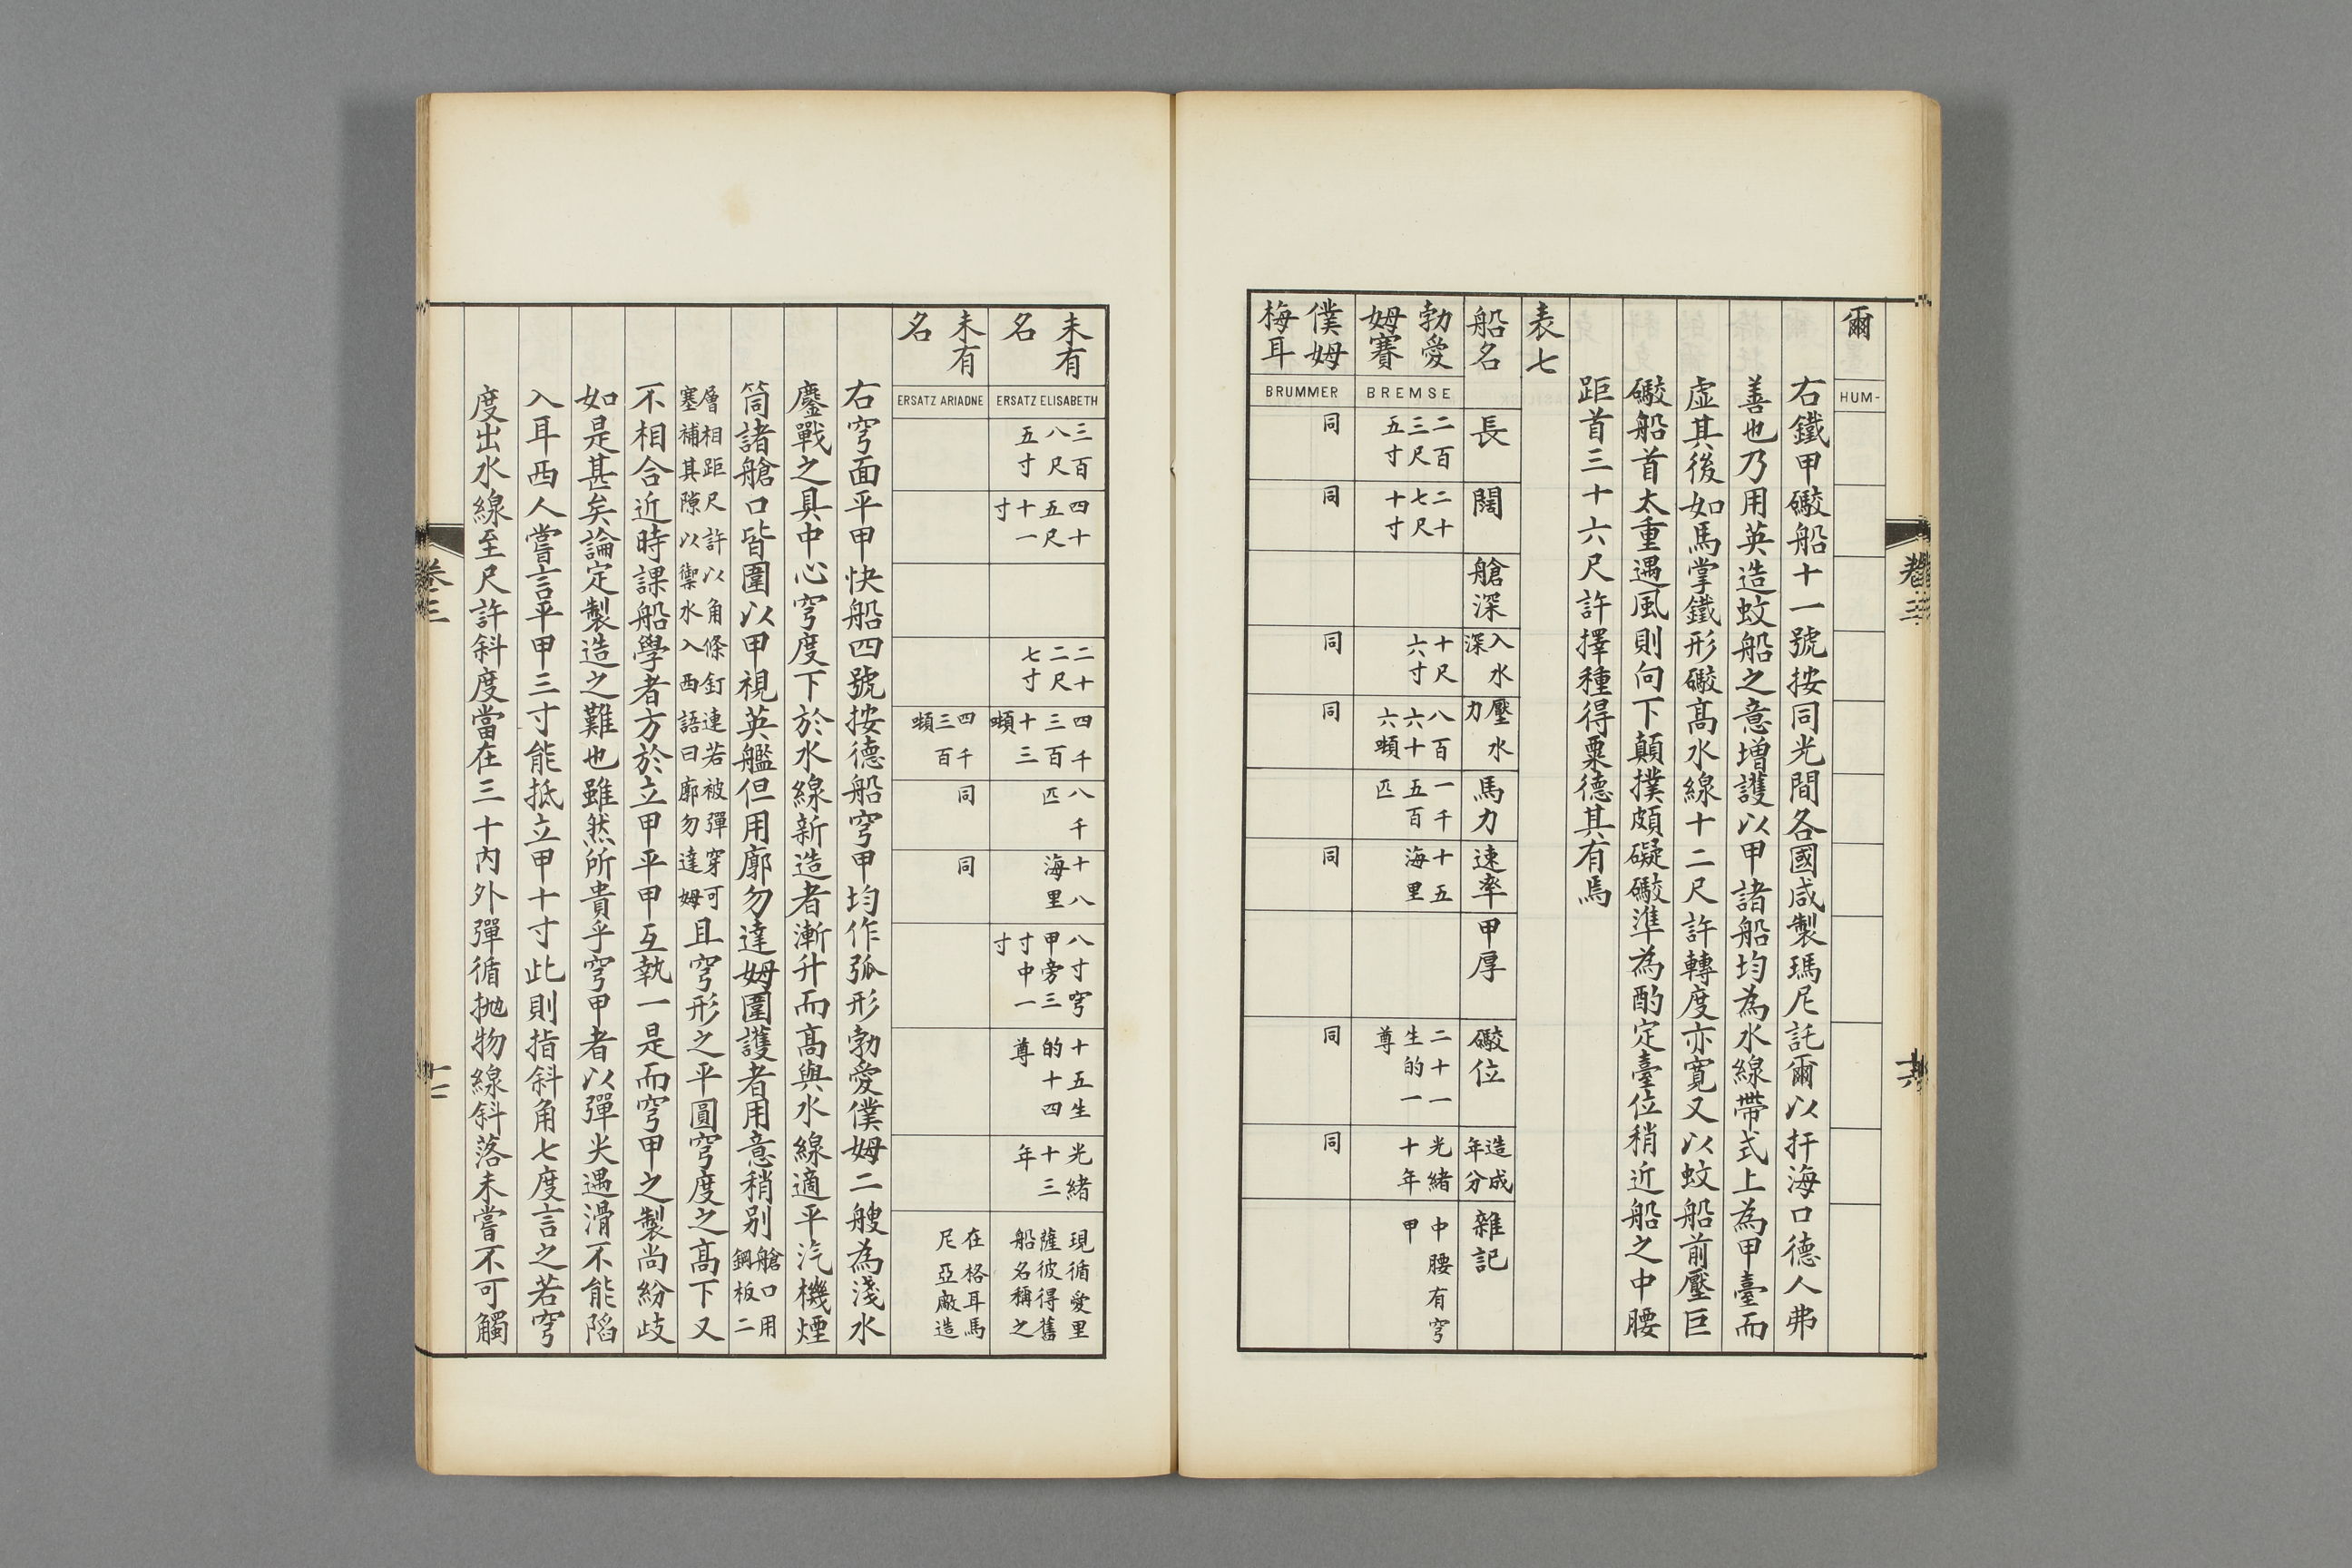 爾
HUM-
右鐵甲礮船十一號按同光間各國咸製瑪尼託爾以扞海口德人弗
善也乃用英造蚊船之意增護以甲諸船均為水線帶式上為甲臺而
虛其後如馬掌鐵形礮高水線十二尺許轉度亦寬又以蚊船前壓巨
礮船首太重遇風則向下顛撲頗礙礮準為酌定臺位稍近船之中腰
距首三十六尺許擇種得粟德其有焉
表七
船名
長
闊
艙深
入水
深
壓水
力
馬力
速率
甲厚
礮位
造成
年分
雜記
勃愛
姆賽
BREMSE
二百
三尺
五寸
二十
七尺
十寸
十尺
六寸
八百
六十
六噸
一千
五百
匹
十五
海里
二十一
生的一
尊
光緒
十年
中腰有穹
甲
僕姆
梅耳
BRUMMER
同
同
同
同
同
同
同
卷三
未有
名
ERSATZ ELISABETH
三百
八尺
五寸
四十
五尺
十一
寸
二十
二尺
七寸
四千
三百
十三
噸
八千
匹
十八
海里
八寸穹
甲旁三
寸中一
寸
十五生
的十四
尊
光緒
十三
年
現循愛里
薩彼得舊
船名稱之
未有
名
ERSATZ ARIADNE
四千
三百
噸
同
同
在格耳馬
尼亞廠造
右穹面平甲快船四號按德船穹甲均作弧形勃愛僕姆二艘為淺水
鏖戰之具中心穹度下於水線新造者漸升而高與水線適平汽機煙
筒諸艙口皆圍以甲視英艦但用廓勿達姆圍護者用意稍別
艙口用
鋼板二
層相距尺許以角條釘連若被彈穿可
塞補其隙以禦水入西語曰廓勿達姆
且穹形之平圓穹度之高下又
不相合近時課船學者方於立甲平甲互執一是而穹甲之製尚紛歧
如是甚矣論定製造之難也雖然所貴乎穹甲者以彈尖遇滑不能陷
入耳西人嘗言平甲三寸能抵立甲十寸此則指斜角七度言之若穹
度出水線至尺許斜度當在三十內外彈循拋物線斜落未嘗不可觸
卷三